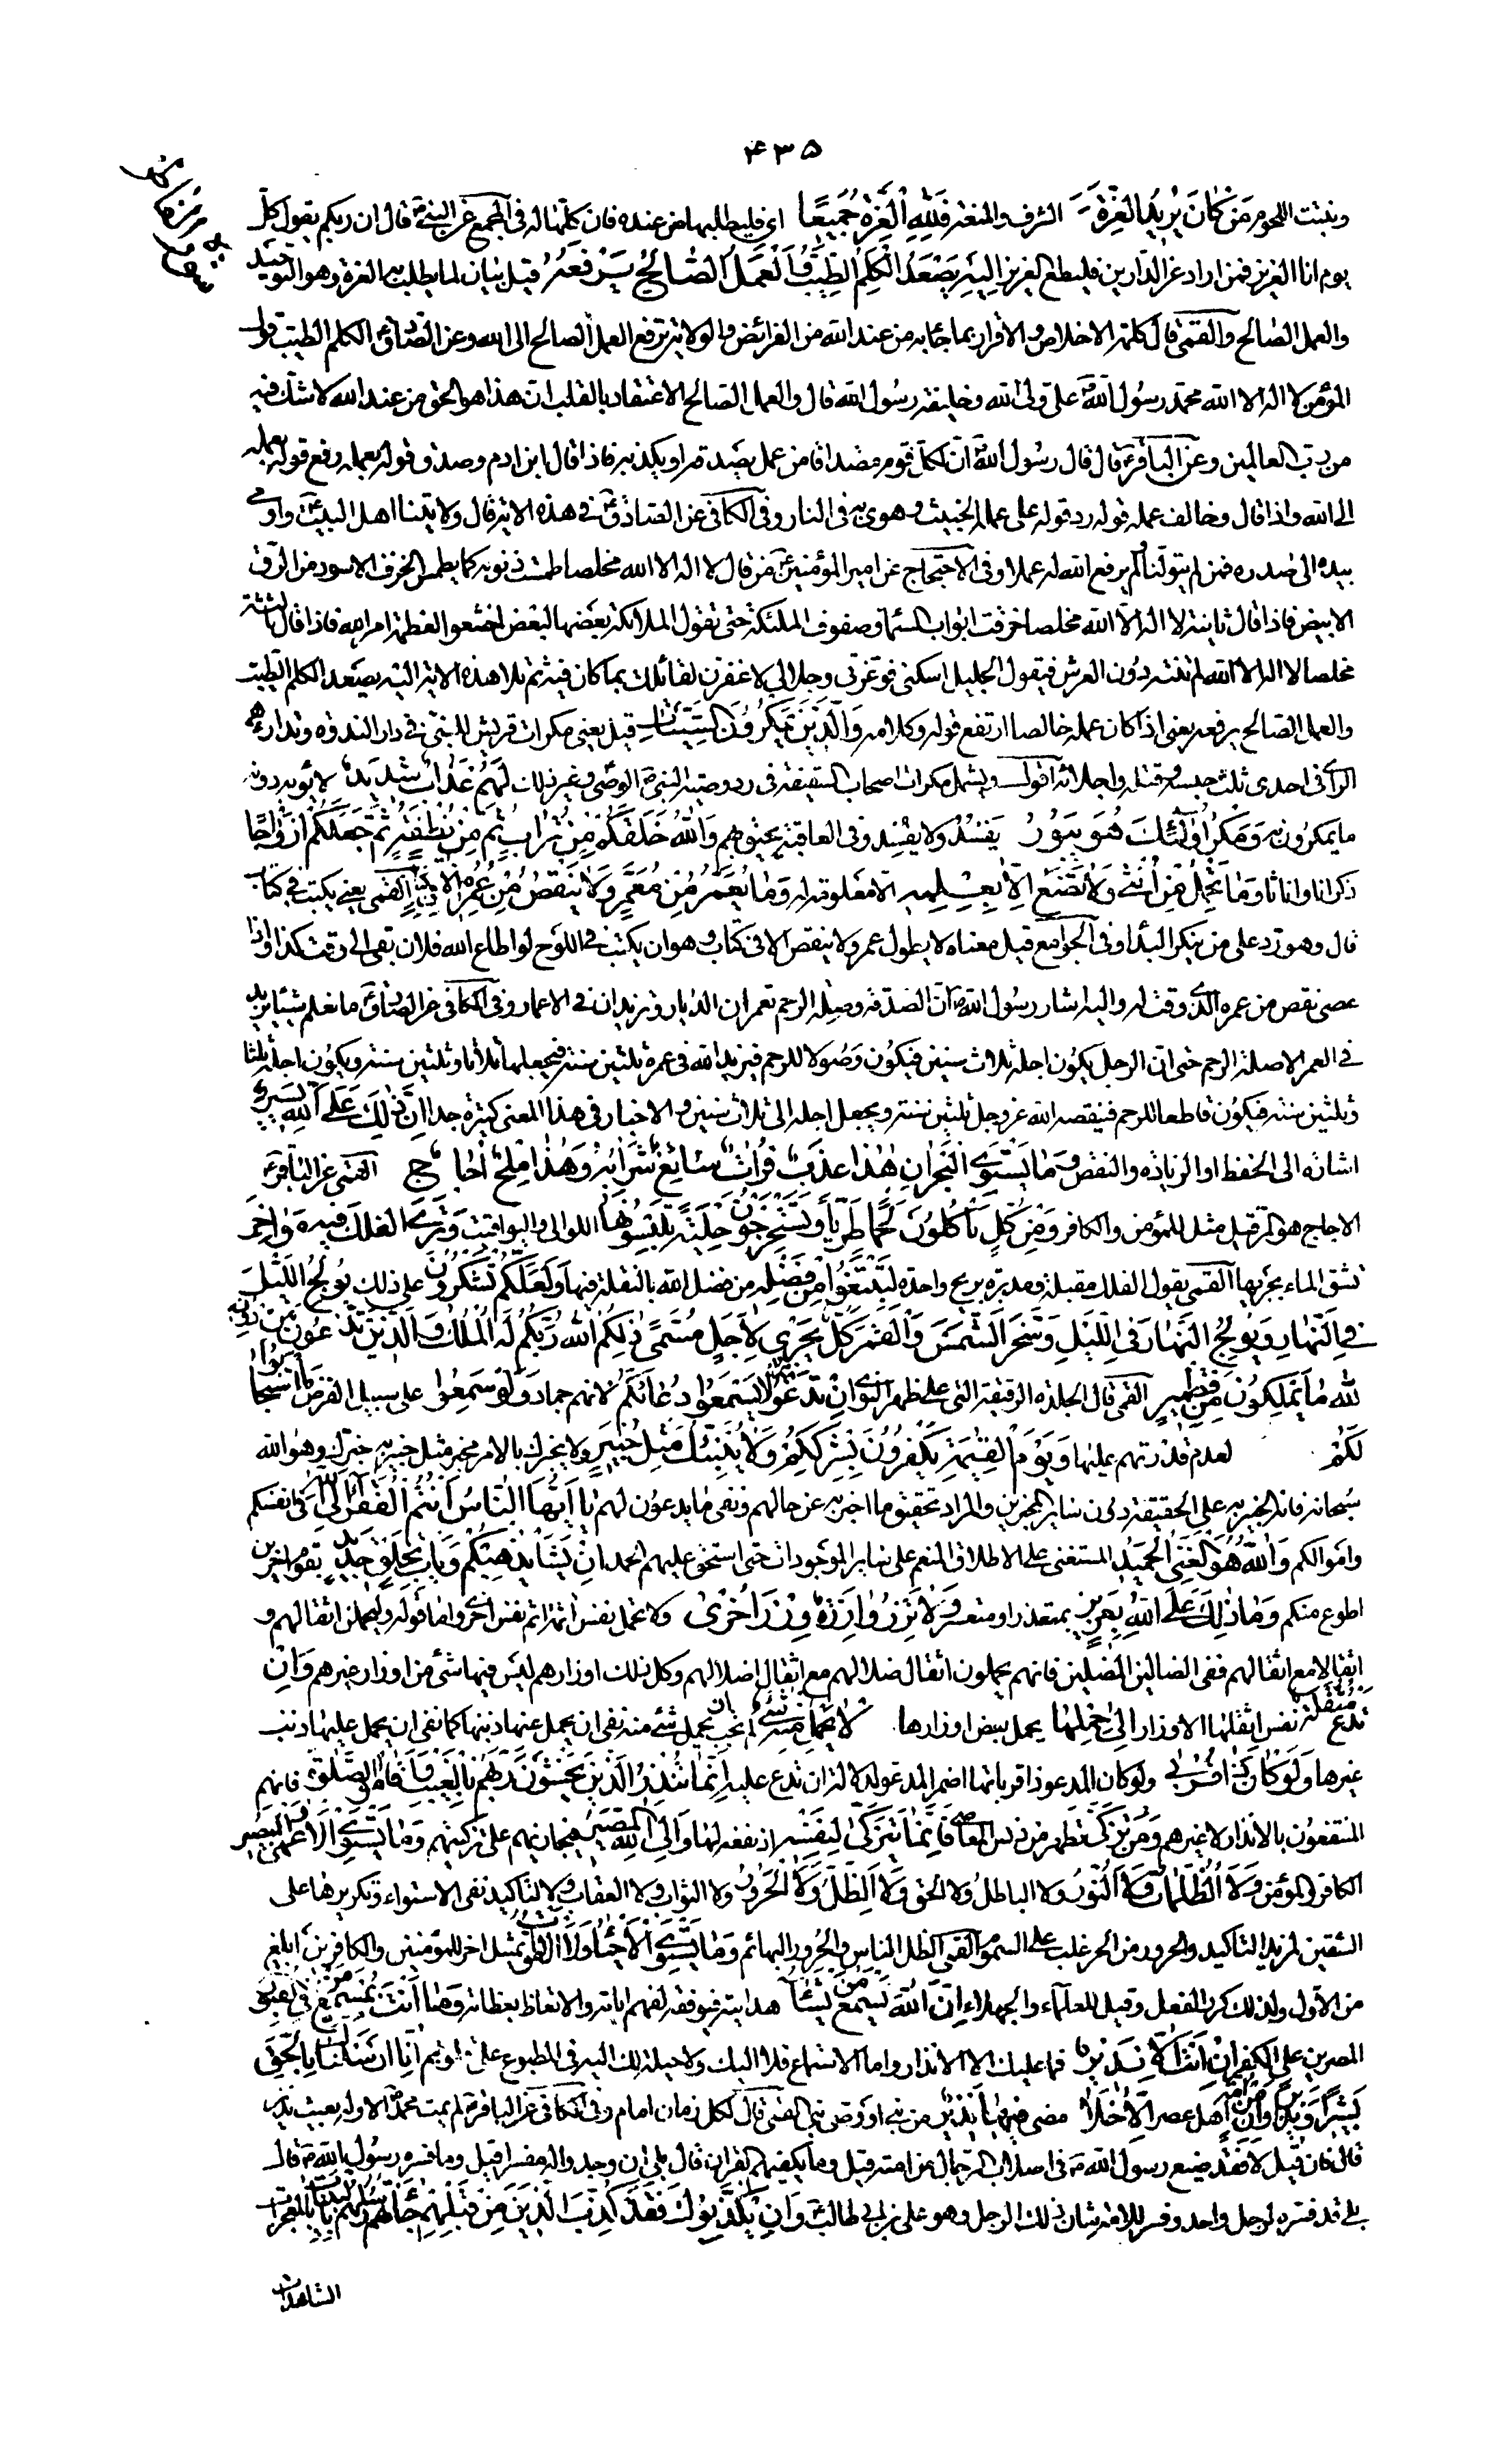 ۴۳۵
وينبت اللحوم مَن كانَ يُريدُ العِزّةَ الشرف والمنعة فَلِلّهِ العِزّةُ جَميعًا اي فليطلبها من عنده فان كلّها له في المجمع عن النبي ص قال ان ربكم يقول كل
يوم انا العزيز فمن اراد عز الدارين فليطع العزيز اِلَيهِ يَصعَدُ الكَلِمُ الطَيِّبُ وَالعَمَلُ الصّالِحُ يَرفَعُهُ قيل بيان لما يطلب به العزة وهو التوحيد
والعمل الصالح والقمي قال كلمة الاخلاص والاقرار بما جاء به من عند الله من الفرائض والولاية ترفع العمل الصالح الى الله وعن الصادق ع الكلم الطيب قول
المؤمن لا اله الا الله محمد رسول الله ص علي ولي الله وخليفة رسول الله قال والعمل الصالح الاعتقاد بالقلب ان هذا هو الحق من عند الله لا شك فيه
من رب العالمين وعن الباقر ع قال قال رسول الله ص ان لكل قوم مصداقا من عمل يصدقه او يكذبه فاذا قال ابن ادم وصدق قوله بعمله رفع قوله بعمله
الى الله واذا قال وخالف عمله قوله رد قوله على عمله الخبيث وهوى به في النار وفي الكافي عن الصادق ع في هذه الاية قال ولايتنا اهل البيت واومى
بيده الى صدره فمن لم يتولنا لم يرفع الله له عملا وفي الاحتجاج عن امير المؤمنين ع من قال لا اله الا الله مخلصا طمست ذنوبه كما يطمس الحرف الاسود من الرق
الابيض فاذا قال ثانية لا اله الا الله مخلصا خرقت ابواب السماء وصفوف الملئكة حتى تقول الملائكة بعضها لبعض اخشعوا لعظمة امر الله فاذا قال ثالثة
مخلصا لا اله الا الله لم تنته دون العرش فيقول الجليل اسكني فوعزتي وجلالي لاغفرن لقائلك بما كان فيه ثم تلا هذه الاية اليه يصعد الكلم الطيب
والعمل الصالح يرفعه يعني اذا كان عمله خالصا ارتفع قوله وكلامه وَالَّذينَ يَمكُرُونَ السَيِّئاتِ قيل يعني مكرات قريش للنبي في دار الندوة وتدارءهم
الرأي في احدى ثلث حبسه وقتله واجلائه اقول ويشمل مكرات اصحاب السقيفة في رد وصية النبي ص الوصي وغير ذلك لَهُم عَذابٌ شَديدٌ لا يؤبه دونه
ما يمكرون به وَمَكرُ اُولئِكَ هُوَ يَبُورُ يفسد ولا ينفذ وفي العاقبة يحيق بهم وَاللهُ خَلَقَكُم مِن تُرابٍ ثُمَّ مِن نُطفَةٍ ثُمَّ جَعَلَكُم اَزواجًا
ذكرانا واناثا وَما تَحمِلُ مِن اُنثى وَلا تَضَعُ اِلاّ بِعِلمِه الا معلومة له وَما يُعَمَّرُ مِن مُعَمَّرٍ وَلا يُنقَصُ مِن عُمُرِه اِلاّ في كِتابٍ القمي يعني يكتب في كتاب
قال وهو رد على من ينكر البداء وفي الجوامع قيل معناه لا يطول عمر ولا ينقص الا في كتاب وهو ان يكتب في اللوح لو اطاع الله فلان بقي الى وقت كذا واذا
عصى نقص من عمره الذي وقت له واليه اشار رسول الله ص ان الصدقة وصلة الرحم تعمران الديار وتزيدان في الاعمار وفي الكافي عن الصادق ع ما نعلم شيئا يزيد
في العمر الا صلة الرحم حتى ان الرجل يكون اجله ثلاث سنين فيكون وصولا للرحم فيزيد الله في عمره ثلثين سنة فيجعلها ثلاثا وثلثين سنة ويكون اجله ثلثا
وثلثين سنة فيكون قاطعا للرحم فينقصه الله عز وجل ثلثين سنة ويجعل اجله الى ثلاث سنين والاخبار في هذا المعنى كثيرة جدا اِنَّ ذلِكَ عَلَى اللهِ يَسيرٌ
اشارة الى الحفظ او الزيادة والنقص وَما يَستَوِي البَحرانِ هذا عَذبٌ فُراتٌ سائِغٌ شَرابُهُ وَهذا مِلحٌ اُجاجٌ القمي عن الباقر ع
الاجاج هو المر قيل مثل للمؤمن والكافر وَمِن كُلٍّ تَأكُلُونَ لَحمًا طَرِيًّا وَتَستَخرِجُونَ حِليَةً تَلبَسُونَها اللؤالي واليواقيت وَتَرَى الفُلكَ فيهِ مَواخِرَ
تشق الماء بجريها القمي يقول الفلك مقبلة ومدبرة بريح واحدة لِتَبتَغُوا مِن فَضلِه من فضل الله بالنقلة فيها وَلَعَلَّكُم تَشكُرُونَ على ذلك يُولِجُ اللَيلَ
فِي النَّهارِ وَيُولِجُ النَّهارَ فِي اللَّيلِ وَسَخَّرَ الشَّمسَ وَالقَمَرَ كُلٌّ يَجرِي لِاَجَلٍ مُسَمًّى ذلِكُمُ اللهُ رَبُّكُم لَهُ المُلكُ وَالَّذينَ تَدعُونَ مِن دُونِه
لله ما يَملِكُونَ مِن قِطميرٍ القمي قال الجلدة الرقيقة التي على ظهر النوى اِن تَدعُوهُم لا يَسمَعُوا دُعاءَكُم لانهم جماد وَلَو سَمِعُوا على سبيل الفرض مَا استَجابُوا
لَكُم لعدم قدرتهم عليها وَيَومَ القِيمَةِ يَكفُرُونَ بِشِركِكُم وَلا يُنَبِّئُكَ مِثلُ خَبيرٍ ولا يخبرك بالامر مخبر مثل خبير به خبرك وهو الله
سبحانه فانه الخبير به على الحقيقة دون سائر المخبرين والمراد تحقيق ما اخبر به عن حالهم ونفي ما يدعون لهم يا اَيُّهَا النّاسُ اَنتُمُ الفُقَراءُ اِلَى اللهِ في انفسكم
واموالكم وَاللهُ هُوَ الغَنِيُّ الحَميدُ المستغني على الاطلاق المنعم على سائر الموجودات حتى استحق عليهم الحمد اِن يَشَأ يُذهِبكُم وَيَأتِ بِخَلقٍ جَديدٍ بقوم اخرين
اطوع منكم وَما ذلِكَ عَلَى اللهِ بِعَزيزٍ بمتعذر او متعسر وَلا تَزِرُ وازِرَةٌ وِزرَ اُخرى ولا تحمل نفس اثمة اثم نفس اخرى واما قوله وليحملن اثقالهم و
اثقالا مع اثقالهم ففي الضالين المضلين فانهم يحملون اثقال ضلالهم مع اثقال اضلالهم وكل ذلك اوزارهم ليس فيها شئ من اوزار غيرهم وَاِن
تَدعُ مُثقَلَةٌ نفس اثقلها الاوزار اِلى حِملِها يحمل بعض اوزارها لا يُحمَل مِنهُ شَئٌ لم تجب بحمل شئ منه نفى ان يحمل عنها ذنبها كما نفى ان يحمل عليها ذنب
غيرها وَلَو كانَ ذا قُربى ولو كان المدعو ذا قرابتها اضمر المدعو لدلالة ان تدع عليه اِنَّما تُنذِرُ الَّذينَ يَخشَونَ رَبَّهُم بِالغَيبِ وَاَقامُوا الصَّلوةَ فانهم
المنتفعون بالانذار لا غيرهم وَمَن تَزَكّى تطهر من دنس المعاصي فَاِنَّما يَتَزَكّى لِنَفسِه اذ نفعه لها وَاِلَى اللهِ المَصيرُ فيجازيهم على تزكيتهم وَما يَستَوِي الاَعمى وَالبَصيرُ
الكافر والمؤمن وَلاَ الظُّلُماتُ وَلاَ النُّورُ ولا الباطل ولا الحق وَلاَ الظِّلُّ وَلاَ الحَرُورُ ولا الثواب ولا العقاب ولا لتاكيد نفي الاستواء وتكريرها على
الشقين لمزيد التاكيد والحرور من الحر غلب على السموم القمي الظل الناس والحرور البهائم وَما يَستَوِي الاَحياءُ وَلاَ الاَمواتُ تمثيل اخر للمؤمنين والكافرين ابلغ
من الاول ولذلك كرر الفعل وقيل للعلماء والجهلاء اِنَّ اللهَ يُسمِعُ مَن يَشاءُ هدايته فيوفقه لفهم اياته والاتعاظ بعظاته وَما اَنتَ بِمُسمِعٍ مَن فِي القُبُورِ
المصرين على الكفر اِن اَنتَ اِلاّ نَذيرٌ فما عليك الا الانذار واما الاسماع فلا اليك ولا حيلة لك اليه في المطبوع على قلوبهم اِنّا اَرسَلناكَ بِالحَقِّ
بَشيرًا وَنَذيرًا وَاِن مِن اُمَّةٍ اهل عصر اِلاّ خَلا مضى فيها نَذيرٌ من نبي او وصي نبي القمي قال لكل زمان امام وفي الكافي عن الباقر ع لم يمت محمد ص الا وله بعيث نذير
قال فان قيل لا فقد ضيع رسول الله ص من في اصلاب الرجال من امته قيل وما يكفيهم القران قال بلى ان وجدوا له مفسرا قيل وما فسره رسول الله ص قال
بلى قد فسره لرجل واحد وفسر للامة شان ذلك الرجل وهو علي بن ابي طالب ع وَاِن يُكَذِّبُوكَ فَقَد كَذَّبَ الَّذينَ مِن قَبلِهِم جاءَتهُم رُسُلُهُم بِالبَيِّناتِ بالمعجزات
الشاهدات